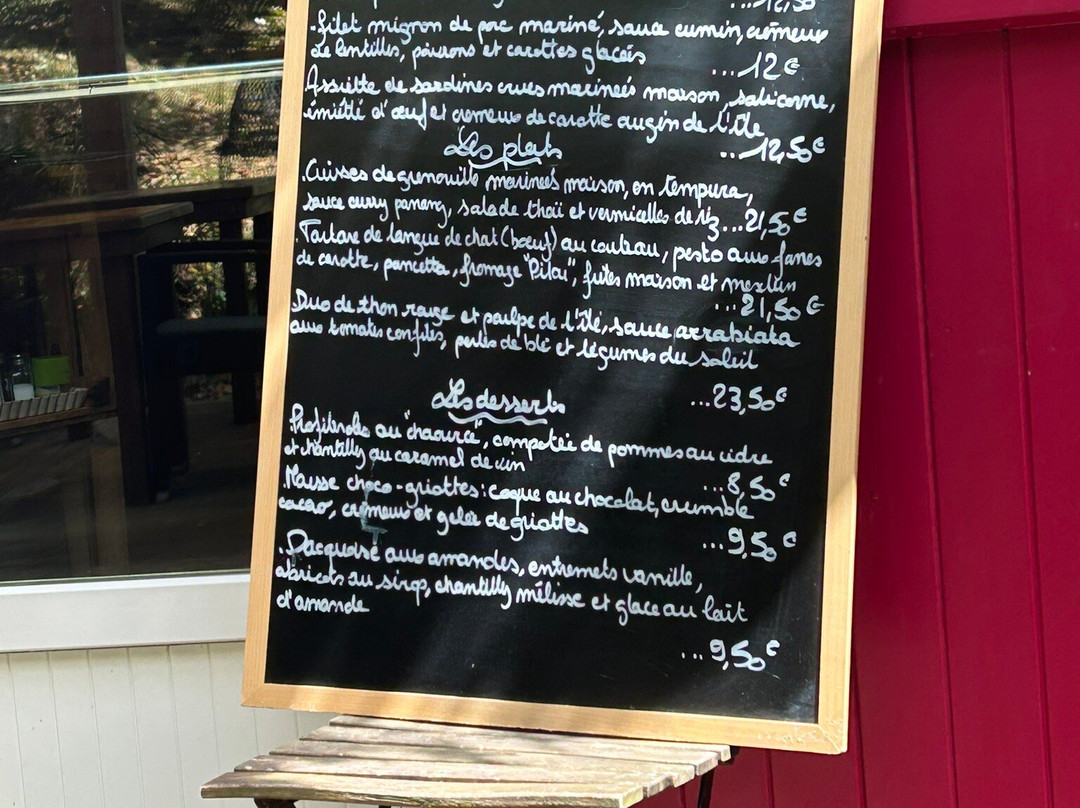 ...12,50
.filet mignon de porc mariné, sauce cumin, crémeux
de lentilles, poivrons et carottes glacés
...12€
Assiette de sardines crues marinées maison, salicorne,
émietté d'œuf et crémeux de carotte au gin de l'île
...12,50€
Les plats
.Cuisses de grenouille marinées maison, en tempura,
sauce curry panang, salade thaï et vermicelles de riz...21,50€
.Tartare de langue de chat (bœuf) au couteau, pesto aux fanes
de carotte, pancetta, fromage "Pilaï", frites maison et mesclun
...21,50€
.Duo de thon rouge et poulpe de l'île, sauce arrabiata
aux tomates confites, perles de blé et légumes du soleil
...23,50€
Les desserts
.Profiteroles au "chaource", compotée de pommes au cidre
et chantilly au caramel de vin
...8,50€
.Mousse choco-griottes: coque au chocolat, crumble
cacao, crémeux et gelée de griottes
...9,50€
.Dacquoise aux amandes, entremets vanille,
abricots au sirop, chantilly mélisse et glace au lait
d'amande
...9,50€